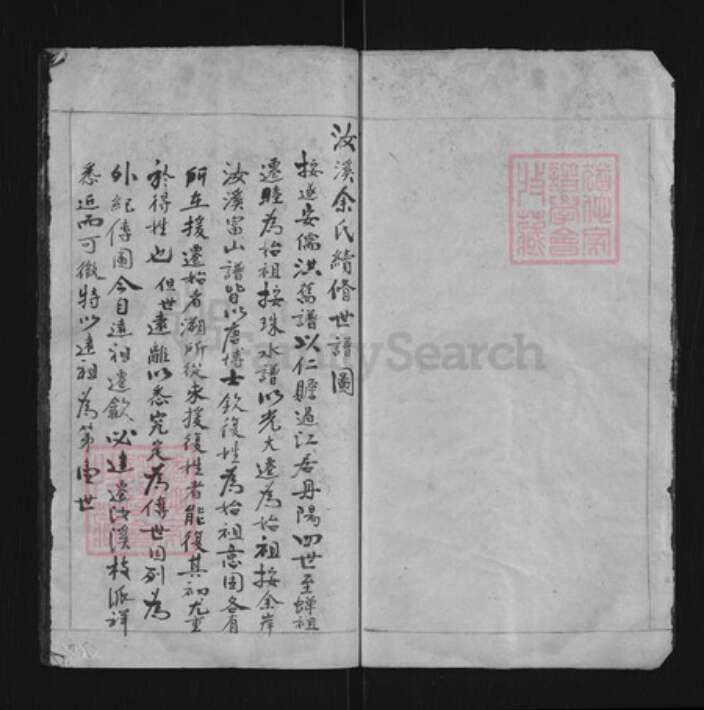 汝溪余氏續脩世譜圖
按遂安儒洪舊譜以仁贍過江居丹陽四世至蟬祖
遷睦為始祖按珠水譜以光大遷為始祖按余岸
汝溪富山譜皆以唐博士欽復姓為始祖意固各有
所在援遷始者溯所從來援復姓者能復其初尤重
於得姓也但世遠難以悉究定為傳世因列為
外紀傳圖今自遠祖遷歙必達遷汝溪枝派詳
悉近而可徵特以遠祖為第壹世
FamilySearch